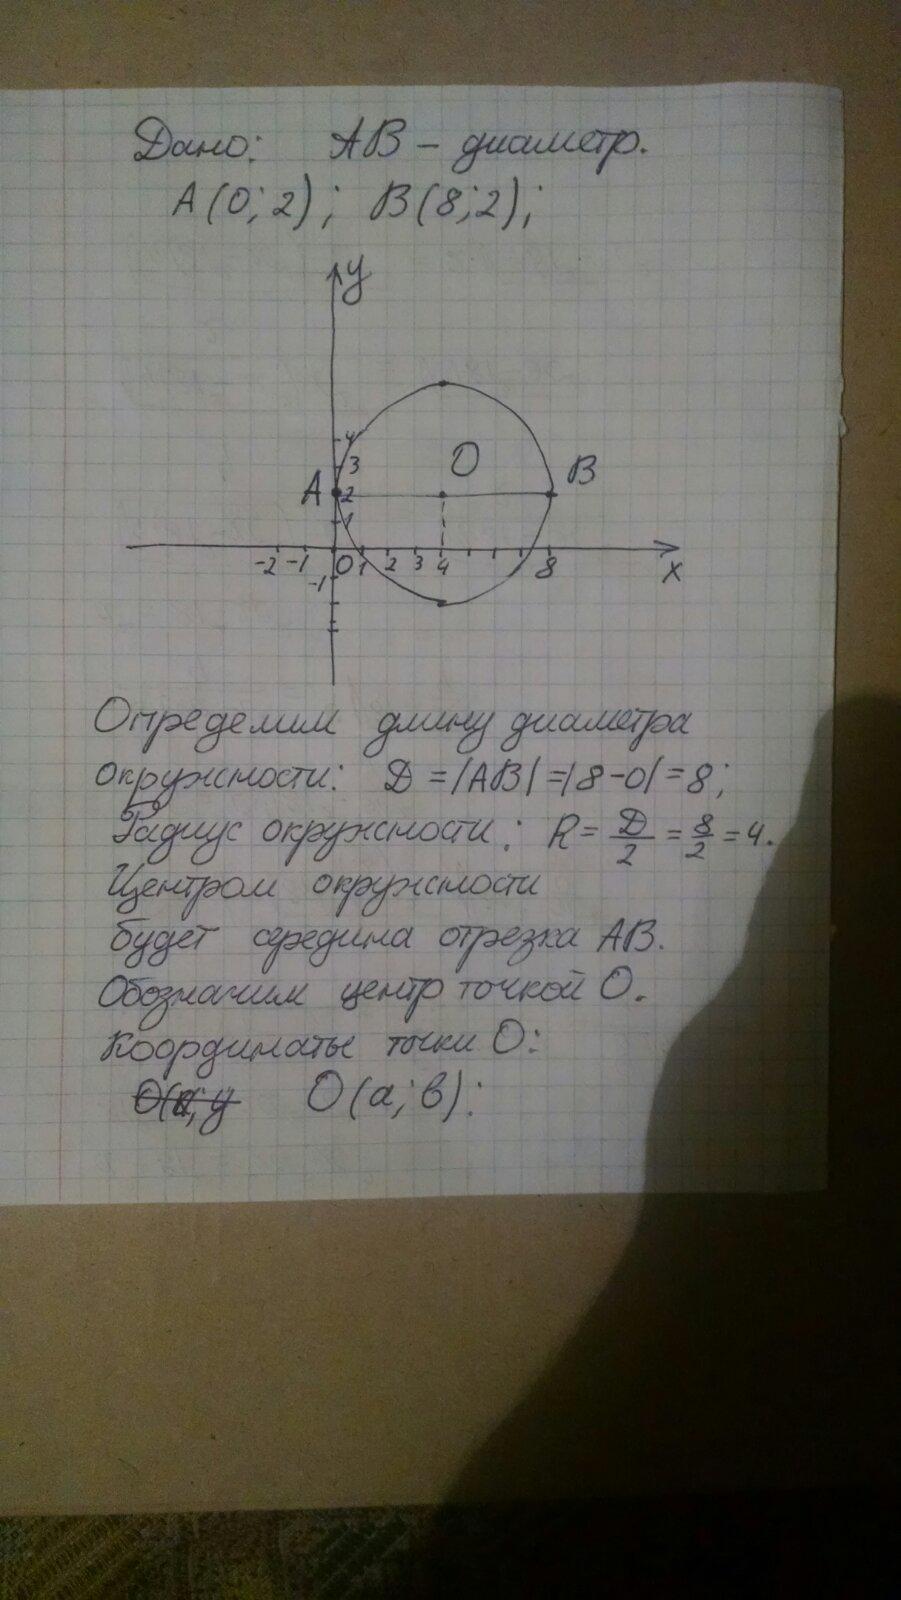 Дано: AB – диаметр.
A(0; 2); B(8; 2);
y
4
3
O
B
A
2
1
-2 -1 0 1 2 3 4 8
x
-1
Определим длину диаметра
окружности: D = |AB| = |8-0| = 8;
Радиус окружности: R = D/2 = 8/2 = 4.
Центром окружности
будет середина отрезка AB.
Обозначим центр точкой O.
Координаты точки O:
O(a; в):